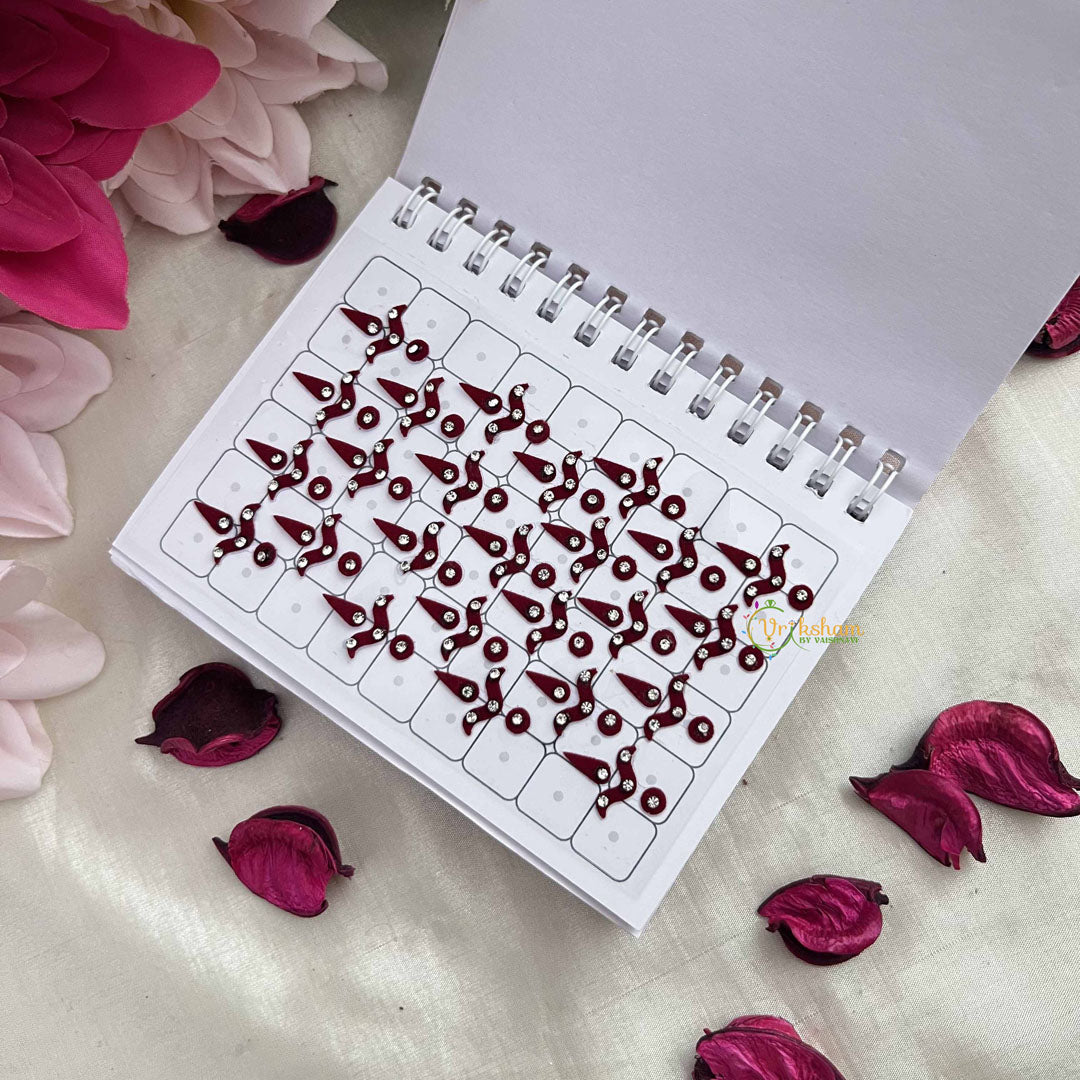 Vriksham
BY VAISHNAVI